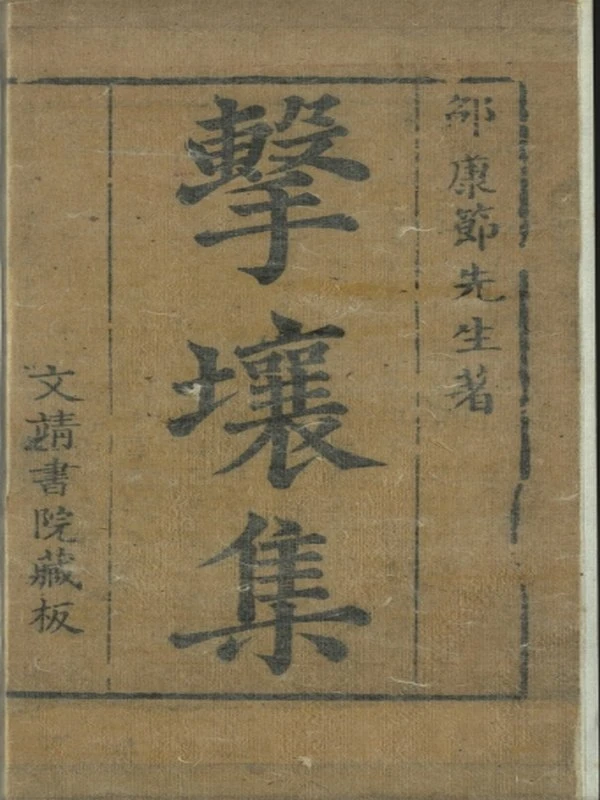 邵康節先生著
擊壤集
文靖書院藏板